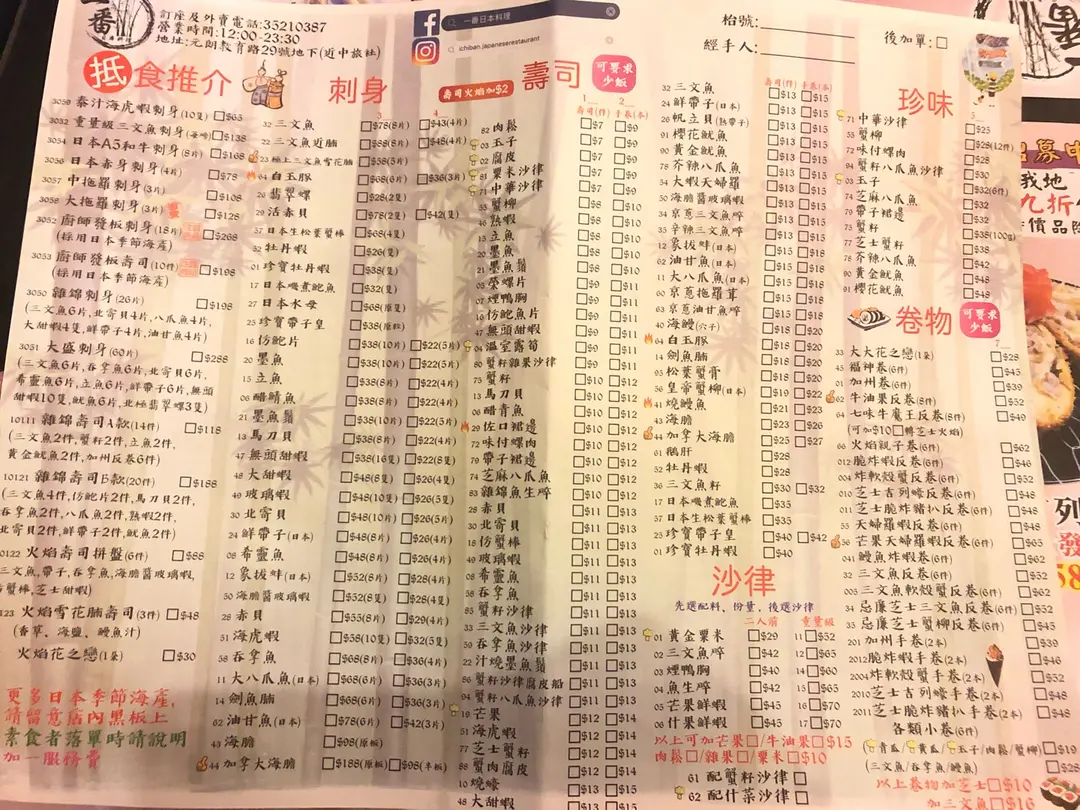 一番
訂座及外賣電話:35210387
營業時間:12:00-23:30
地址:元朗教育路29號地下(近中旅社)
一番日本料理
ichiban.japaneserestaurant
枱號:
經手人:
後加單:□
抵食推介
3059 泰汁海虎蝦刺身(10隻) □$65
3032 重量級三文魚刺身 □$138
3054 日本A5和牛刺身(8片) □$168
3056 日本赤身刺身(4片) □$78
3057 中拖羅刺身(3片) □$108
3058 大拖羅刺身(3片) □$128
3052 廚師發板刺身(18片) □$268
(採用日本季節海產)
3053 廚師發板壽司(10件) □$198
(採用日本季節海產)
3050 雜錦刺身(26片) □$198
(三文魚6片,北寄貝4片,八爪魚4片,
大甜蝦4隻,鮮帶子4片,油甘魚4片)
3051 大盛刺身(60片) □$288
(三文魚6片,吞拿魚6片,北寄貝6片,
希靈魚6片,立魚6片,鮮帶子6片,無頭
甜蝦10隻,魷魚6片,北極翡翠螺3隻)
10111 雜錦壽司A款(14件) □$118
(三文魚2件,蟹籽2件,立魚2件,
黃金魷魚2件,加州反卷6件)
10121 雜錦壽司B款(20件) □$188
(三文魚4件,仿鮑片2件,馬刀貝2件,
吞拿魚2件,八爪魚2件,熟蝦2件,
北寄貝2件,鮮帶子2件,魷魚2件)
0122 火焰壽司拼盤(6件) □$88
三文魚,帶子,吞拿魚,海膽醬玻璃蝦,
蟹棒,芝士甜蝦)
123 火焰雪花腩壽司(3件) □$48
(香草、海鹽、鰻魚汁)
火焰花之戀(1條) □$30
更多日本季節海產,
請留意店內黑板上
素食者落單時請說明
加一服務費
刺身
3 4
32 三文魚 □$78(8片) □$43(4片)
32 三文魚近腩 □$88(8片) □$48(4片)
23 極上三文魚雪花腩 □$58(5片)
64 白玉豚 □$68(6片) □$36(3片)
26 翡翠螺 □$28(2隻)
29 活赤貝 □$78(2隻) □$42(隻)
57 日本生松葉蟹棒 □$68(4隻)
52 牡丹蝦 □$26(隻)
01 珍寶牡丹蝦 □$38(隻)
17 日本磯煮鮑魚 □$32(隻)
27 日本水母 □$68(原隻)
25 珍寶帶子皇 □$38(原粒)
16 仿鮑片 □$38(10片) □$22(5片)
20 墨魚 □$38(10片) □$22(5片)
15 立魚 □$38(8片) □$22(4片)
06 醋鯖魚 □$38(8片) □$22(4片)
21 墨魚鬚 □$38(10片) □$22(5片)
13 馬刀貝 □$38(8片) □$22(4片)
47 無頭甜蝦 □$38(16隻) □$22(8隻)
48 大甜蝦 □$48(8隻) □$26(4隻)
49 玻璃蝦 □$48(10隻) □$26(5隻)
30 北寄貝 □$48(10片) □$26(5片)
24 鮮帶子(日本) □$48(8片) □$26(4片)
08 希靈魚 □$48(8片) □$26(4片)
12 象拔蚌(日本) □$52(8片) □$28(4片)
50 海膽醬玻璃蝦 □$52(8隻) □$28(4隻)
28 赤貝 □$55(8片) □$29(4片)
51 海虎蝦 □$58(10隻) □$32(5隻)
58 吞拿魚 □$68(8片) □$36(4片)
11 大八爪魚(日本) □$68(6片) □$36(3片)
14 劍魚腩 □$68(6片) □$36(3片)
62 油甘魚(日本) □$78(6片) □$42(3片)
43 海膽 □$98(原板)
44 加拿大海膽 □$188(原板) □$98(半板)
壽司
可要求少飯
壽司火焰加$2
1 2
壽司(件) 手卷(本)
82 肉鬆 □$7 □$9
03 玉子 □$7 □$9
02 腐皮 □$7 □$9
81 粟米沙律 □$7 □$9
71 中華沙律 □$7 □$9
55 蟹柳 □$8 □$10
46 熟蝦 □$8 □$10
15 立魚 □$8 □$10
20 墨魚 □$8 □$10
21 墨魚鬚 □$8 □$10
05 螢螺片 □$9 □$11
07 煙鴨胸 □$9 □$11
16 仿鮑魚片 □$9 □$11
47 無頭甜蝦 □$9 □$11
04 溫室露筍 □$9 □$11
80 蟹籽雜果沙律 □$9 □$11
75 蟹籽 □$9 □$11
13 馬刀貝 □$10 □$12
06 醋青魚 □$10 □$12
29 佐口裙邊 □$10 □$12
72 味付螺肉 □$10 □$12
79 帶子裙邊 □$10 □$12
74 芝麻八爪魚 □$10 □$12
83 雜錦魚生啐 □$10 □$12
28 赤貝 □$11 □$13
30 北寄貝 □$11 □$13
18 仿蟹棒 □$11 □$13
49 玻璃蝦 □$11 □$13
08 希靈魚 □$11 □$13
58 吞拿魚 □$11 □$13
85 蟹籽沙律 □$11 □$13
33 三文魚沙律 □$11 □$13
59 吞拿魚沙律 □$11 □$13
22 汁燒墨魚鬚 □$11 □$13
86 蟹籽沙律腐皮船 □$11 □$13
94 蟹籽八爪魚沙律 □$11 □$13
19 芒果 □$12 □$14
51 海虎蝦 □$12 □$14
77 芝士蟹籽 □$12 □$14
88 蟹肉腐皮 □$12 □$14
10 燒蠔 □$12 □$14
48 大甜蝦 □$13 □$15
壽司(件) 手卷(本)
32 三文魚 □$13 □$15
24 鮮帶子(日本) □$13 □$15
26 帆立貝(熟帶子) □$13 □$15
91 櫻花魷魚 □$13 □$15
90 黃金魷魚 □$13 □$15
78 芥辣八爪魚 □$13 □$15
54 大蝦天婦羅 □$13 □$15
50 海膽醬玻璃蝦 □$13 □$15
34 京蔥三文魚啐 □$13 □$15
35 辛辣三文魚啐 □$13 □$15
12 象拔蚌(日本) □$13 □$15
62 油甘魚(日本) □$15 □$18
11 大八爪魚(日本) □$15 □$18
60 京蔥拖羅茸 □$15 □$18
63 京蔥油甘魚啐 □$15 □$18
40 海鰻(穴子) □$18 □$20
64 白玉豚 □$18 □$20
14 劍魚腩 □$18 □$20
95 松葉蟹膏 □$18 □$20
56 皇帝蟹柳(日本) □$19 □$22
41 燒鰻魚 □$21 □$23
42 海膽 □$23 □$26
44 加拿大海膽 □$25 □$27
61 鵝肝 □$28
52 牡丹蝦 □$28
36 三文魚籽 □$30 □$32
17 日本磯煮鮑魚 □$35
57 日本生松葉蟹棒 □$35
25 珍寶帶子皇 □$40 □$42
01 珍寶牡丹蝦 □$40
沙律
先選配料、份量,後選沙律
二人前 重量級
01 黃金粟米 □$29 11□$52
02 三文魚啐 □$42 12□$65
03 煙鴨胸 □$40 14□$60
04 魚生啐 □$42 15□$65
05 芒果鮮蝦 □$45 16□$70
06 什果鮮蝦 □$45 17□$70
以上可加芒果□/牛油果□$15
肉鬆□/雜果□/粟米□$10
61 配蟹籽沙律 □
62 配什菜沙律 □
珍味
5
71 中華沙律 □$25
55 蟹柳 □$28(12件)
72 味付螺肉 □$28
94 蟹籽八爪魚沙律 □$30
03 玉子 □$32(6件)
74 芝麻八爪魚 □$32
79 帶子裙邊 □$32
75 蟹籽 □$38(100g)
77 芝士蟹籽 □$38
78 芥辣八爪魚 □$42
90 黃金魷魚 □$48
91 櫻花魷魚 □$48
卷物
可要求少飯
7
33 大大花之戀(1條) □$28
43 福神卷(6件) □$45
01 加州卷(6件) □$39
02 牛油果反卷(8件) □$52
64 七味牛魔王反卷(8件) □$49
(可加$10□轉芝士火焰)
66 火焰親子卷(6件) □$62
012 脆炸蝦反卷(6件) □$46
004 炸軟殼蟹反卷(6件) □$52
010 芝士吉列蠔反卷(6件) □$48
011 芝士脆炸豬扒反卷(6件) □$48
55 天婦羅蝦反卷(6件) □$48
56 芒果天婦羅蝦反卷(6件) □$65
041 鰻魚炸蝦卷(6件) □$53
32 三文魚反卷(6件) □$52
003 三文魚軟殼蟹反卷(6件) □$62
34 忌廉芝士三文魚反卷(6件) □$52
35 忌廉芝士蟹柳反卷(6件) □$45
2001 加州手卷(2本) □$39
2012 脆炸蝦手卷(2本) □$46
2004 炸軟殼蟹手卷(2本) □$52
2010 芝士吉列蠔手卷(2本) □$48
2011 芝士脆炸豬扒手卷(2本) □$48
各類小卷(6件)
(青瓜/黃瓜/玉子/肉鬆/蟹柳) □$19
(三文魚/吞拿魚/鰻魚) □$28
以上卷物加芝士□$10
加三文魚□$16
我地
九折
價品除
列
發